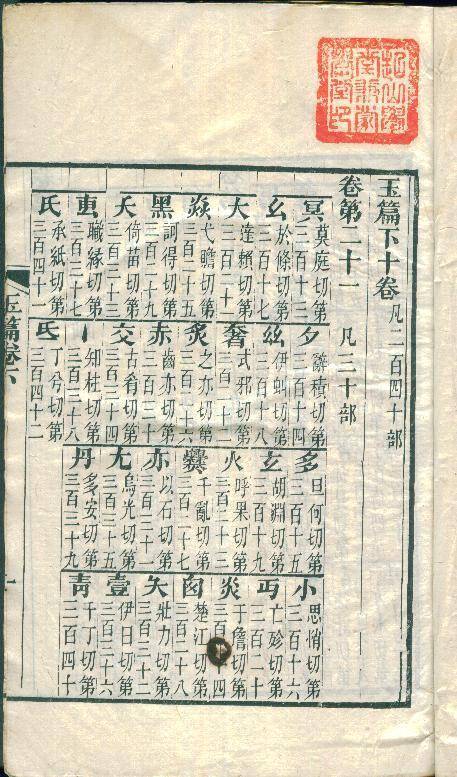 玉篇下十卷 凡二百四十部
卷第二十一 凡三十部
冥 莫庭切第三百一十三
夕 辭積切第三百一十四
多 旦何切第三百一十五
小 思悄切第三百一十六
幺 於條切第三百一十七
𢆶 伊虯切第三百一十八
玄 胡淵切第三百一十九
丏 亡殄切第三百二十
大 達賴切第三百二十一
奢 式邪切第三百二十二
火 呼果切第三百二十三
炎 于詹切第三百二十四
焱 弋贍切第三百二十五
炙 之亦切第三百二十六
爨 千亂切第三百二十七
囪 楚江切第三百二十八
黑 訶得切第三百二十九
赤 齒亦切第三百三十
亦 以石切第三百三十一
夨 壯力切第三百三十二
夭 倚苗切第三百三十三
交 古肴切第三百三十四
尢 烏光切第三百三十五
壹 伊日切第三百三十六
叀 職緣切第三百三十七
丶 知柱切第三百三十八
丹 多安切第三百三十九
靑 千丁切第三百四十
氏 承紙切第三百四十一
氐 丁兮切第三百四十二
玉篇卷六
一